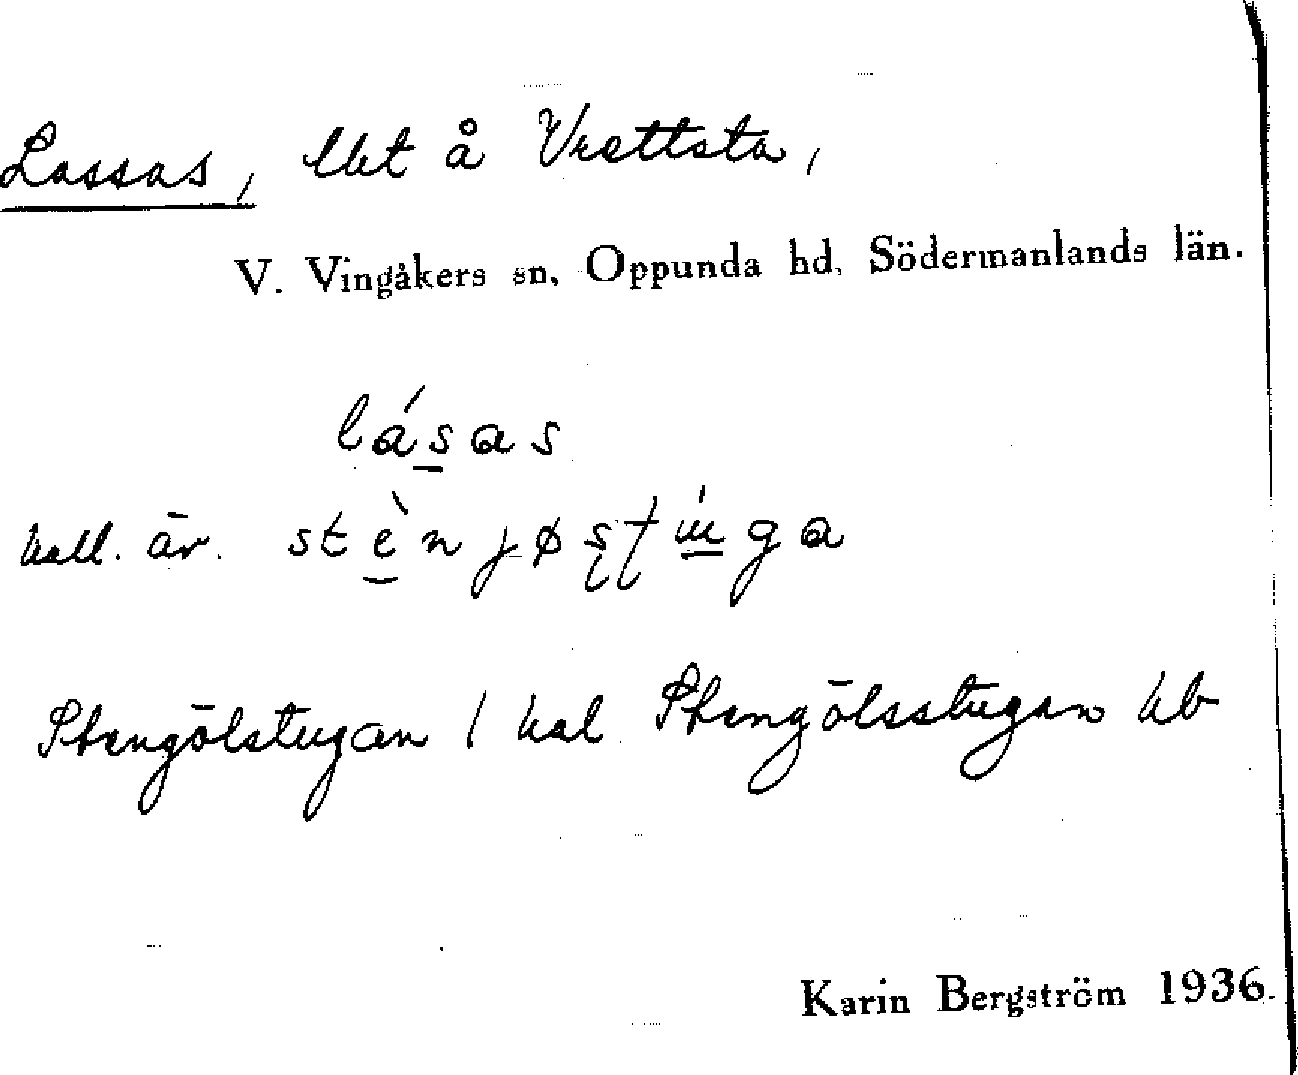 Lassas, lht å Vrettsta,
V. Vingåkers sn, Oppunda hd, Södermanlands län.
lásas
kall. äv. stènjøstúga
Stengölstugan / kal Stengölsstugan kb
Karin Bergström 1936.